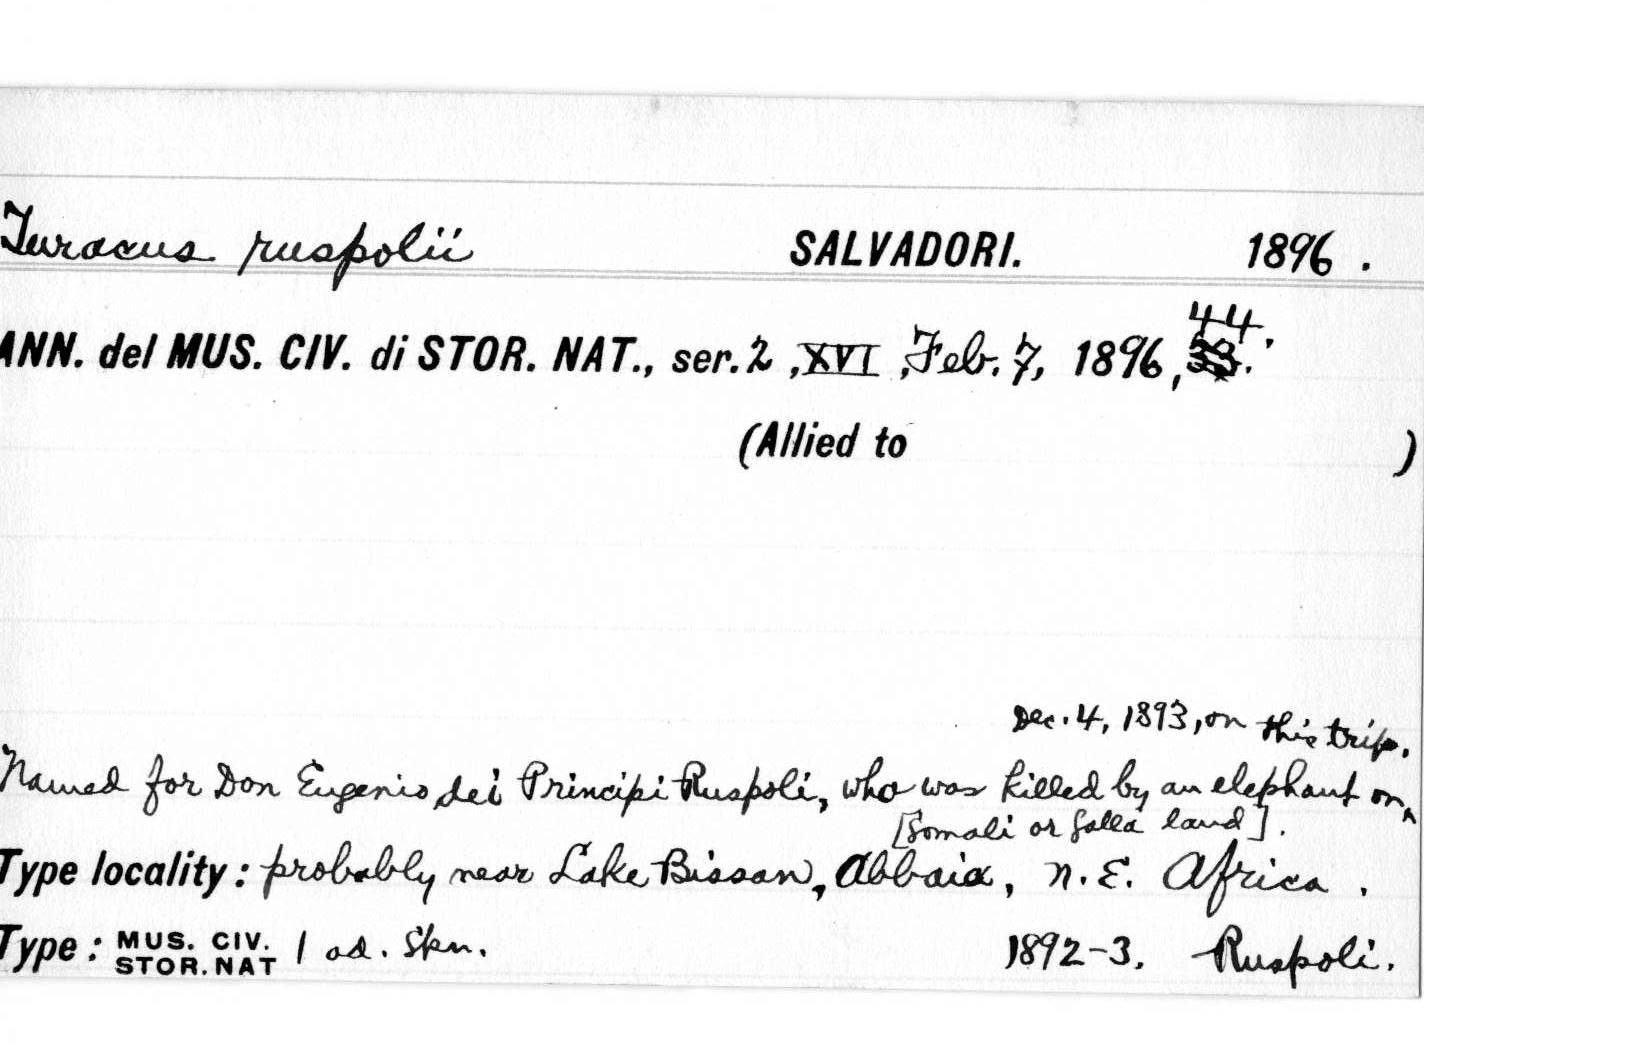 Turacus ruspolii SALVADORI. 1896.
44.
ANN. del MUS. CIV. di STOR. NAT., ser. 2, XVI, Feb. 7, 1896, 33.
(Allied to )
Dec. 4, 1893, on this trip.
Named for Don Eugenio dei Principi Ruspoli, who was killed by an elephant on ^
[Somali or Galla land].
Type locality: probably near Lake Bissan, Abbaia, N. E. Africa.
Type: MUS. CIV. STOR. NAT 1 ad. Skn. 1892-3. Ruspoli.